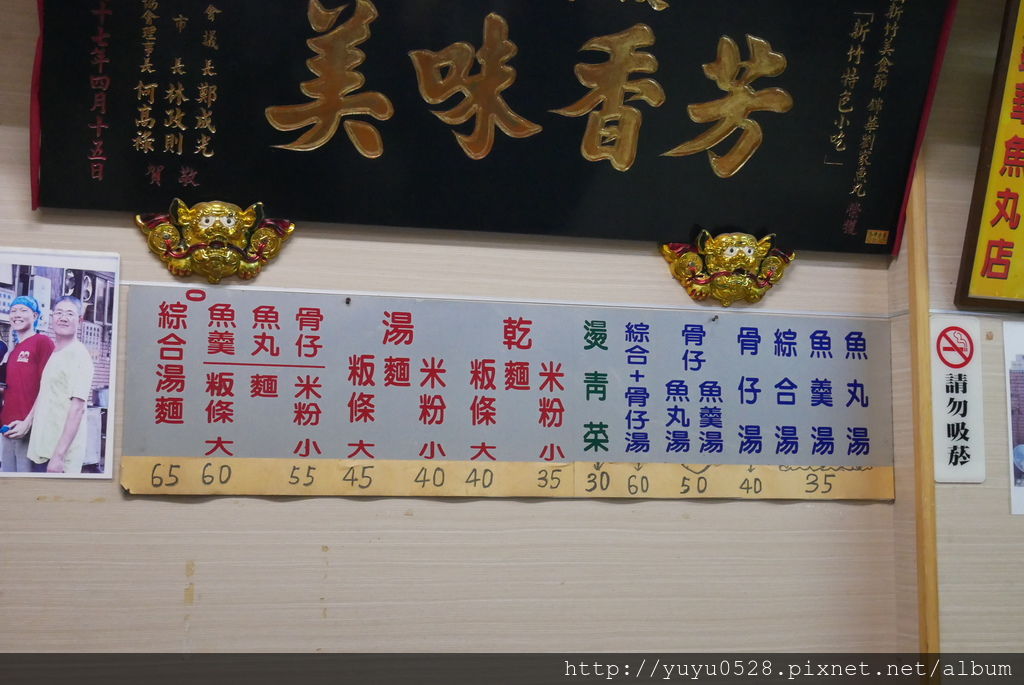 芳香味美
新竹美食節 錦華劉家魚丸 榮獲
「新竹特色小吃」
會議長鄭成光
市長林政則
協會理事長柯萬祿
敬賀
十七年四月十五日
華魚丸店
魚丸湯
魚羹湯
綜合湯
35
骨仔湯
40
骨仔
魚羹湯
魚丸湯
50
綜合+骨仔湯
60
燙青菜
30
乾
米粉 麵 粄條
小 35
大 40
湯
米粉 麵 粄條
小 40
大 45
骨仔 魚丸 魚羹
米粉 麵 粄條
小 55
大 60
綜合湯麵
65
請勿吸菸
http://yuyu0528.pixnet.net/album